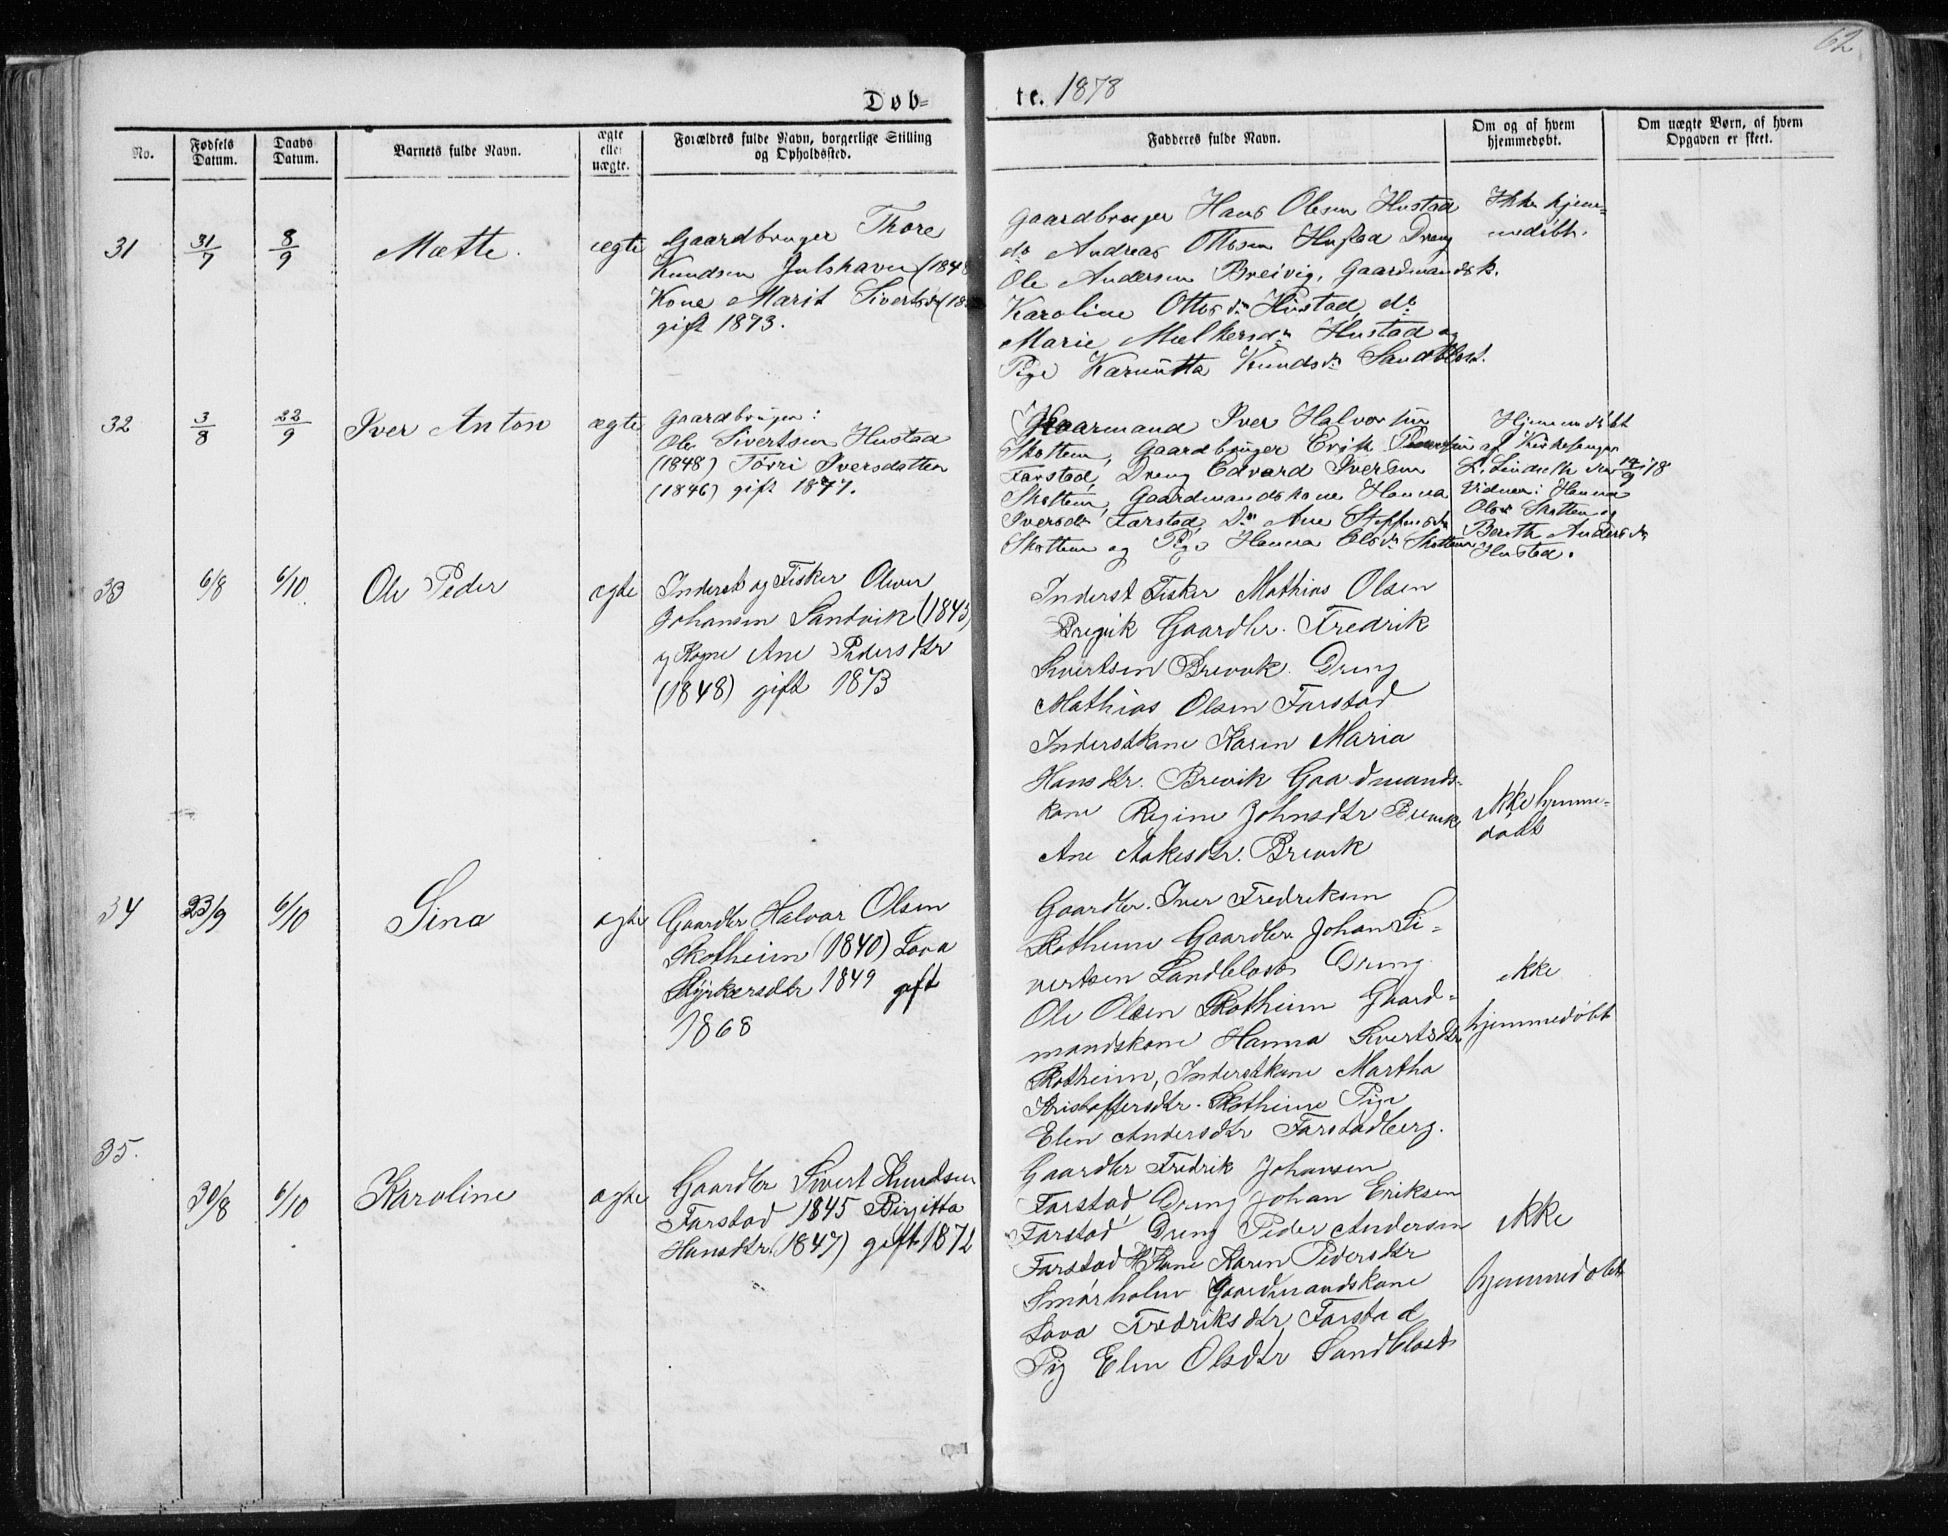 62
Døb=
te. 1878
No.
Fødsels Datum.
Daabs Datum.
Barnets fulde Navn.
ægte eller uægte.
Forældres fulde Navn, borgerlige Stilling
og Opholdssted.
Fadderes fulde Navn.
Om og af hvem
hjemmedøbt.
Om uægte Børn, af hvem
Opgaven er skeet.
31
31/7
8/9
Mætte.
ægte
Gaardbruger Thore
Knudsen Julshavn (1848
Kone Marit Sivertsd (18
gift 1873.
Gaardbruger Hans Olesen Hustad
do Andreas Ottesen Hustad Dreng
Ole Andersen Breivig, Gaardmandsk.
Karoline Ottosdn Hustad, do
Marie Melkersdn Hustad og
Pige Knudsdn Sandblost.
Ikke hjem-
medøbt.
32
3/8
22/9
Iver Anton
ægte
Gaardbruger:
Ole Sivertsen Hustad
(1848) Tørri Iversdatter
(1846) gift 1877.
Iver Halvorsen
Skottem, Gaardbruger Erik
Farstad, Dreng Edvard Iversen
Skottem, Gaardmandskone Hanna
Iversdn Farstad, Do Ane Steffensdn
Skottem og Pige Hanna Olsdn Skottem
Hjemmedøbt
af Kirkesanger
L. Lindseth den 14/9 78
Vidner: Hanna
Olsd Skottem og
Bereth Andersdn
Hustad.
33
6/8
6/10
Ole Peder
ægte
Inderst og Fisker Oliver
Johansen Sandvik (1845)
og Kone Ane Pedersdtr
(1848) gift 1873
Inderst Fisker Mathias Olsen
Brevik Gaardbr. Fredrik
Sivertsen Brevik. Dreng
Mathias Olsen Farstad
Inderstkone Karen Maria
Hansdtr. Brevik Gaardmands-
kone Regine Johnsdtr Brevik
Ane Aakesdtr. Brevik
ikke hjemme-
døbt
34
23/9
6/10
Sina
ægte
Gaardbr Halvor Olsen
Skotheim (1840) Lova
Styrkersdtr 1849 gift
1868
Gaardbr. Iver Fredriksen
Skotheim Gaardbr. Johan Si-
vertsen Sandblost Dreng
Ole Olsen Skotheim Gaard-
mandskone Hanna Sivertsdtr
Skotheim, Inderstkone Martha
Kristoffersdtr. Skotheim Pige
Elen Andersdtr Farstadberg.
ikke
hjemmedøbt
35.
30/8
6/10
Karoline
ægte
Gaardbr Sivert Knudsen
Farstad 1845 Birgitta
Hansdtr. (1847) gift 1872
Gaardbr Fredrik Johansen
Farstad, Dreng Johan Eriksen
Farstad Dreng Peder Andersen
Farstad Kone Karen Pedersdtr
Smørholm Gaardmandskone
Lova Fredriksdtr, Farstad
Pig Elen Olsdtr Sandblost
ikke
hjemmedøbt